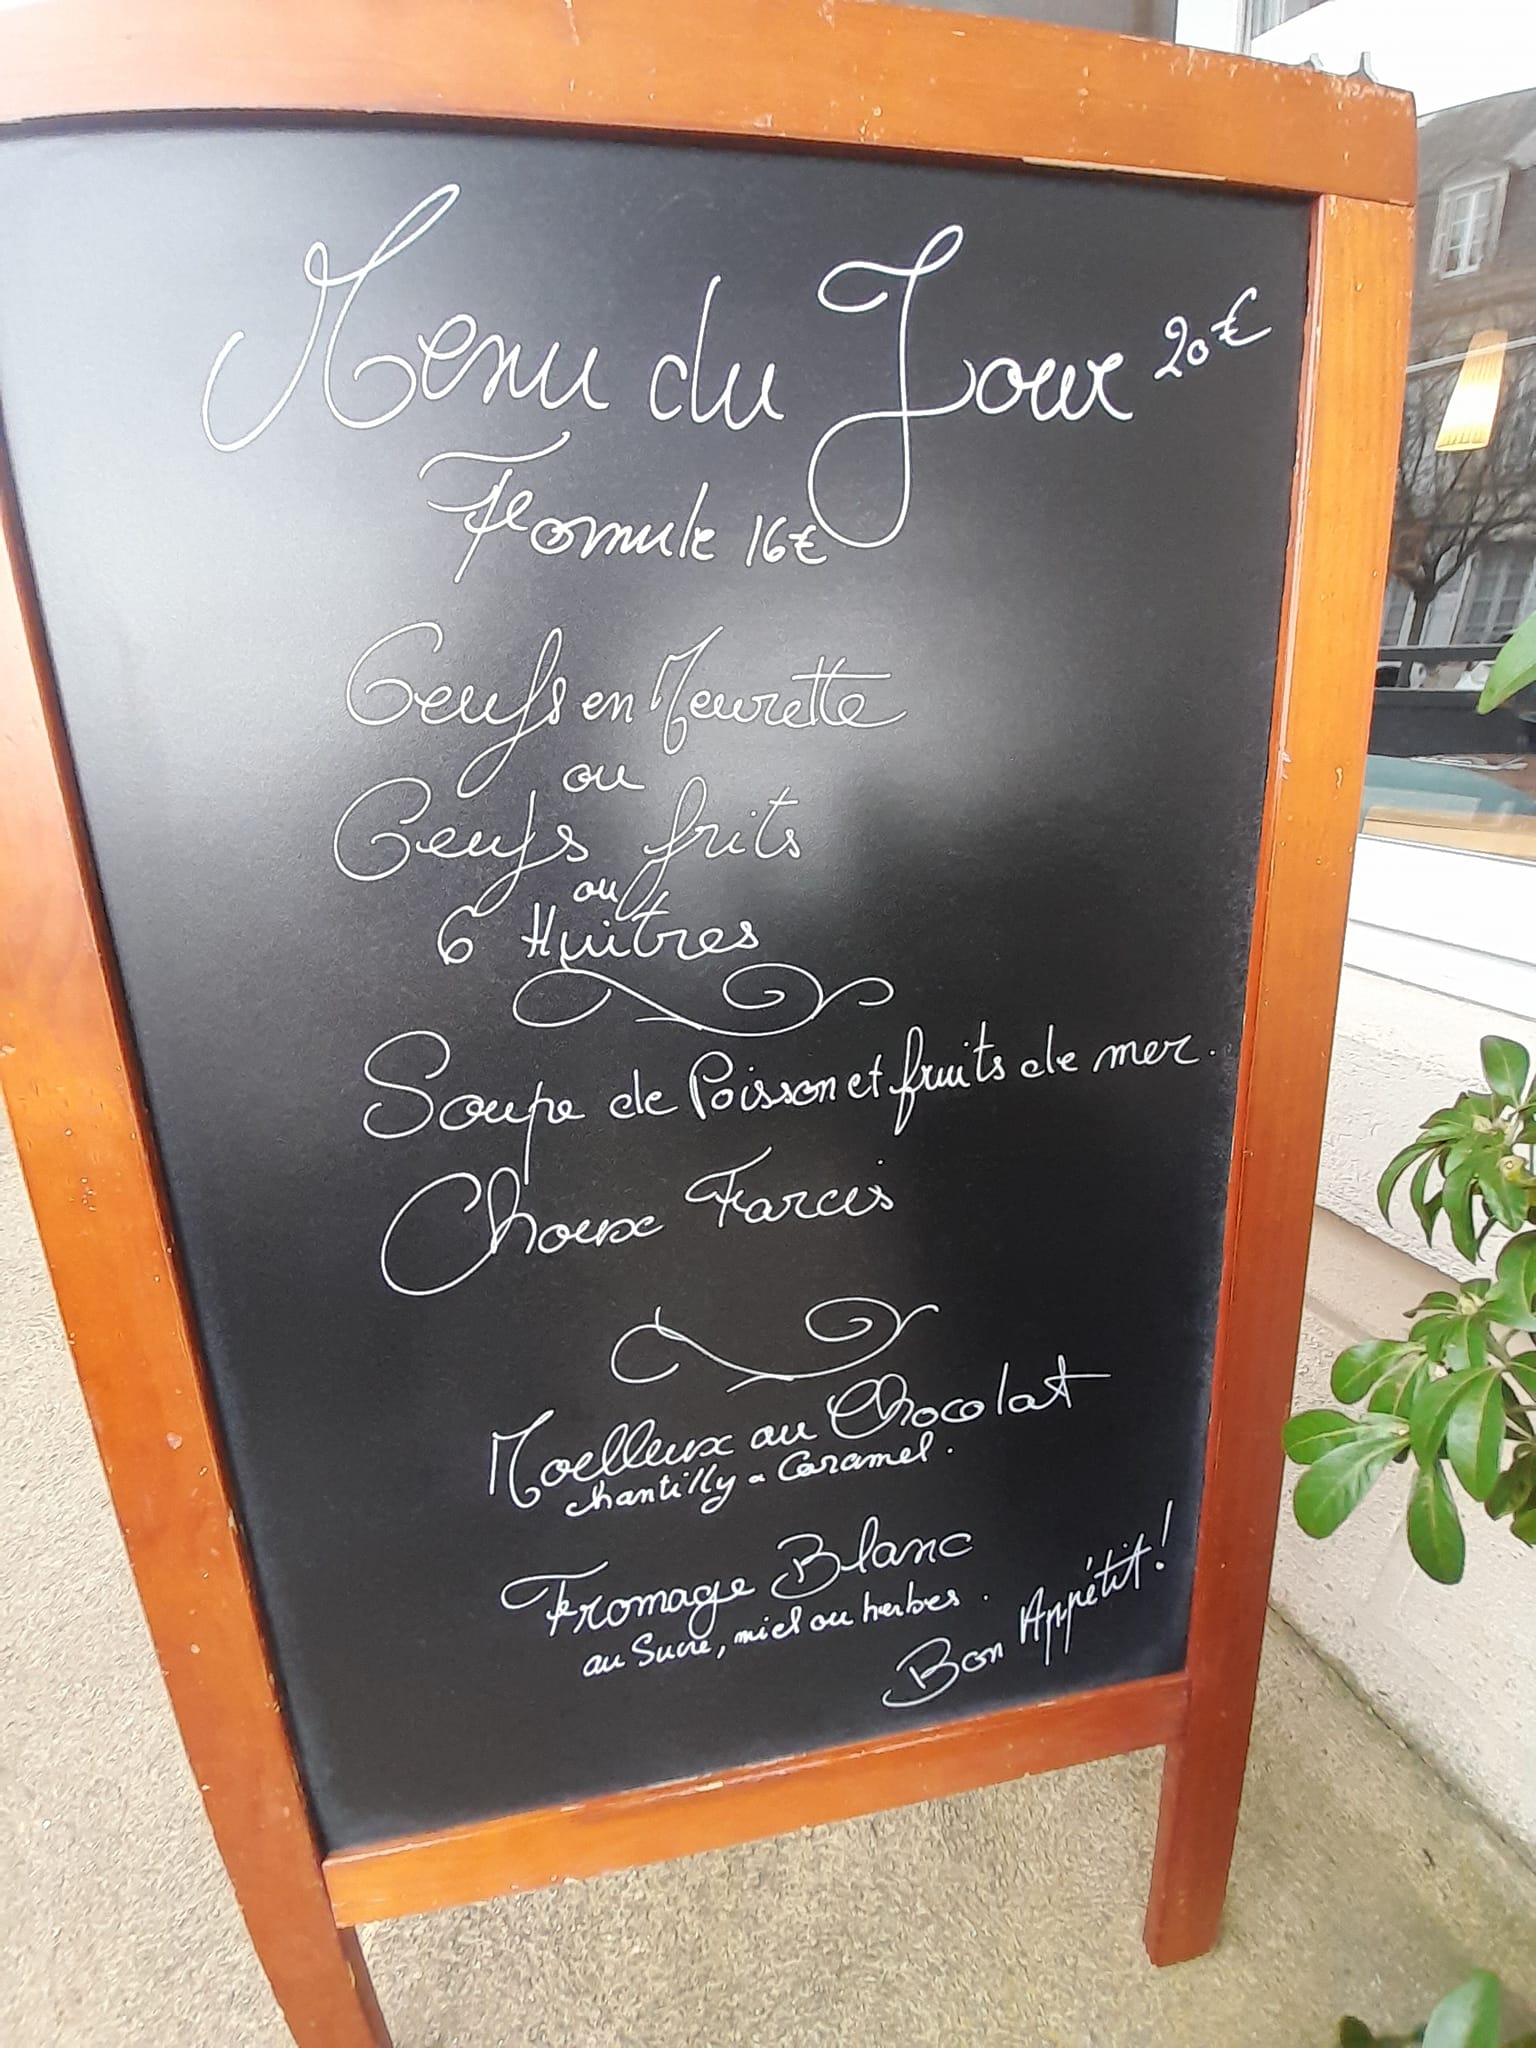 Menu du Jour 20€
Formule 16€
Oeufs en Meurette
ou
Oeufs frits
ou
6 Huîtres
Soupe de Poisson et fruits de mer.
Choux Farcis
Moelleux au Chocolat
chantilly - Caramel.
Fromage Blanc
au Sucre, miel ou herbes.
Bon Appétit!